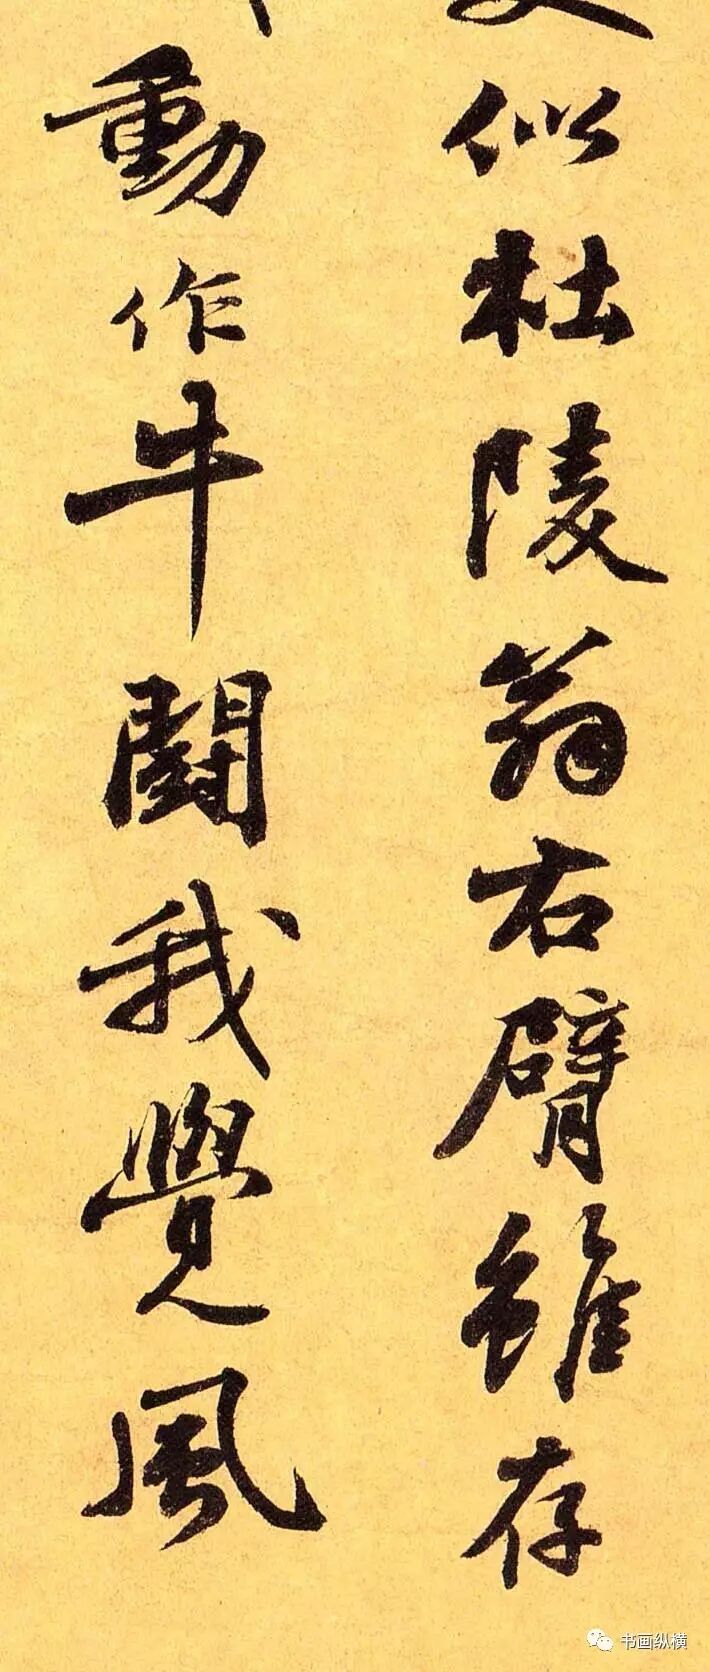 似杜陵翁右臂雖存
動作牛鬪我覺風
书画纵横